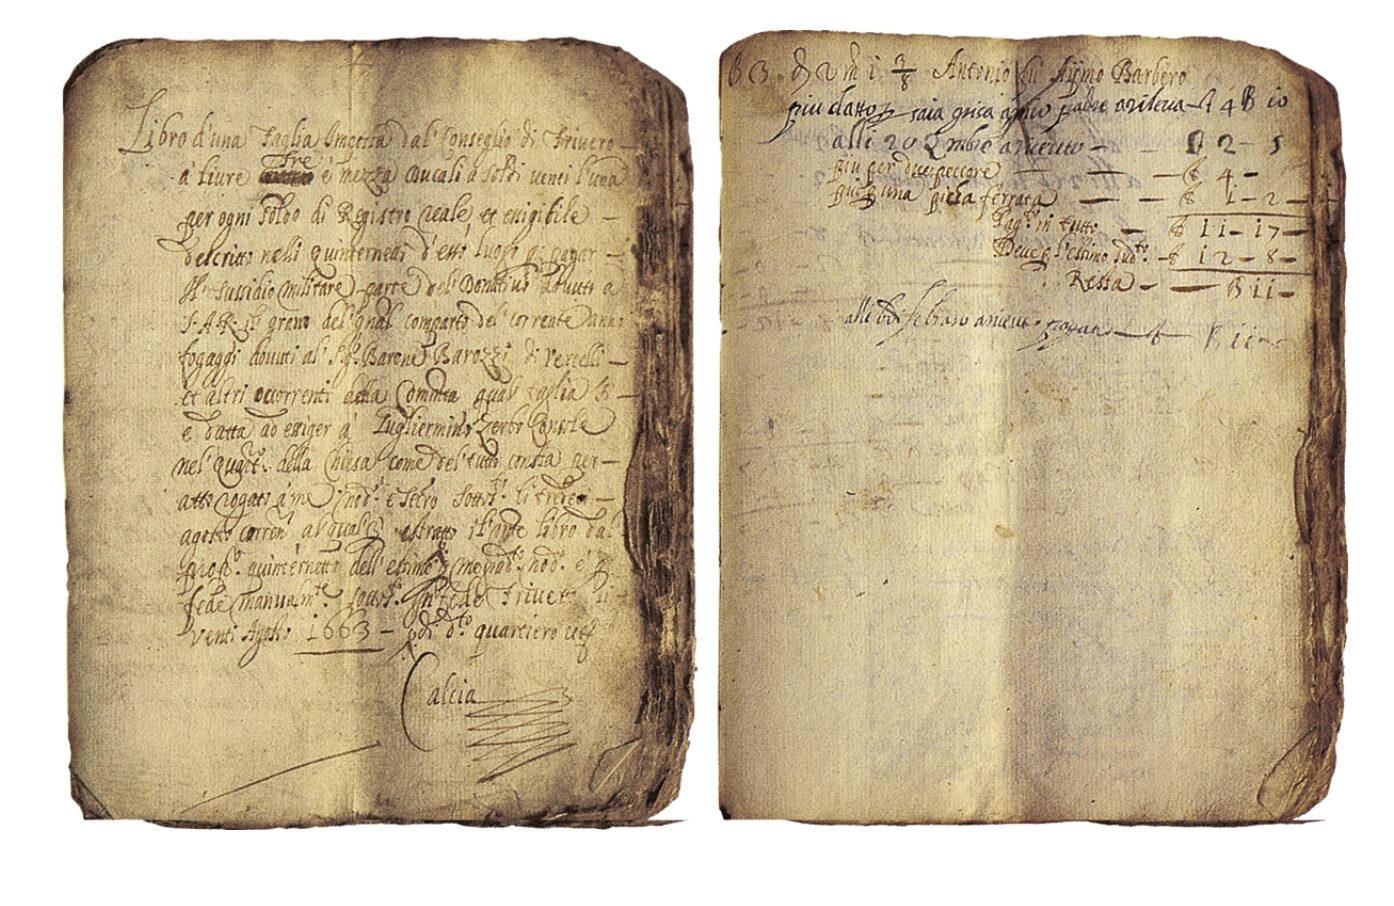 Libro d'una Taglia Imposta dal Conseglio di Trivero
à livre Tre è mezza Ducali à soldi venti l'una
per ogni soldo di Registro reale et exigibile
descritto nelli quinternetti d'esso luogo pagar
il sussidio militare parte del Donativo dovuto a
S. A. R. il grano del qual comparto del corrente anno
fogaggi dovuti al Sigr. Barone Barozzi di Vercelli
et altri occorrenti della Comunità qual taglia
è datta ad exiger à Gugliermino Zerbo Console
nel quart.o della Chiesa come del tutto consta per
atto rogato à me nod.o e Segro sottto. li tredeci
agosto corren.te al qual è estratto il pnte libro dal
quinternetto dell'estimo me nod.o è p
fede manualm.te sotts. In fede Trivero li
venti Agosto 1663 - di d.to quartiero
Calcia
B 3 d 2 m 1 3/8 Antonio fu Barbero
piu datto saia grisa padre £ 4 B 10
alli 20 £ 2 - 5
piu per due pecore £ 4 -
piu p una pietra ferrata £ 1 - 2 -
Pag.to in tutto £ 11 - 17 -
Deve p l'estimo sud.to £ 12 - 8 -
Resta B 11 -
alli febraro pagato B 11